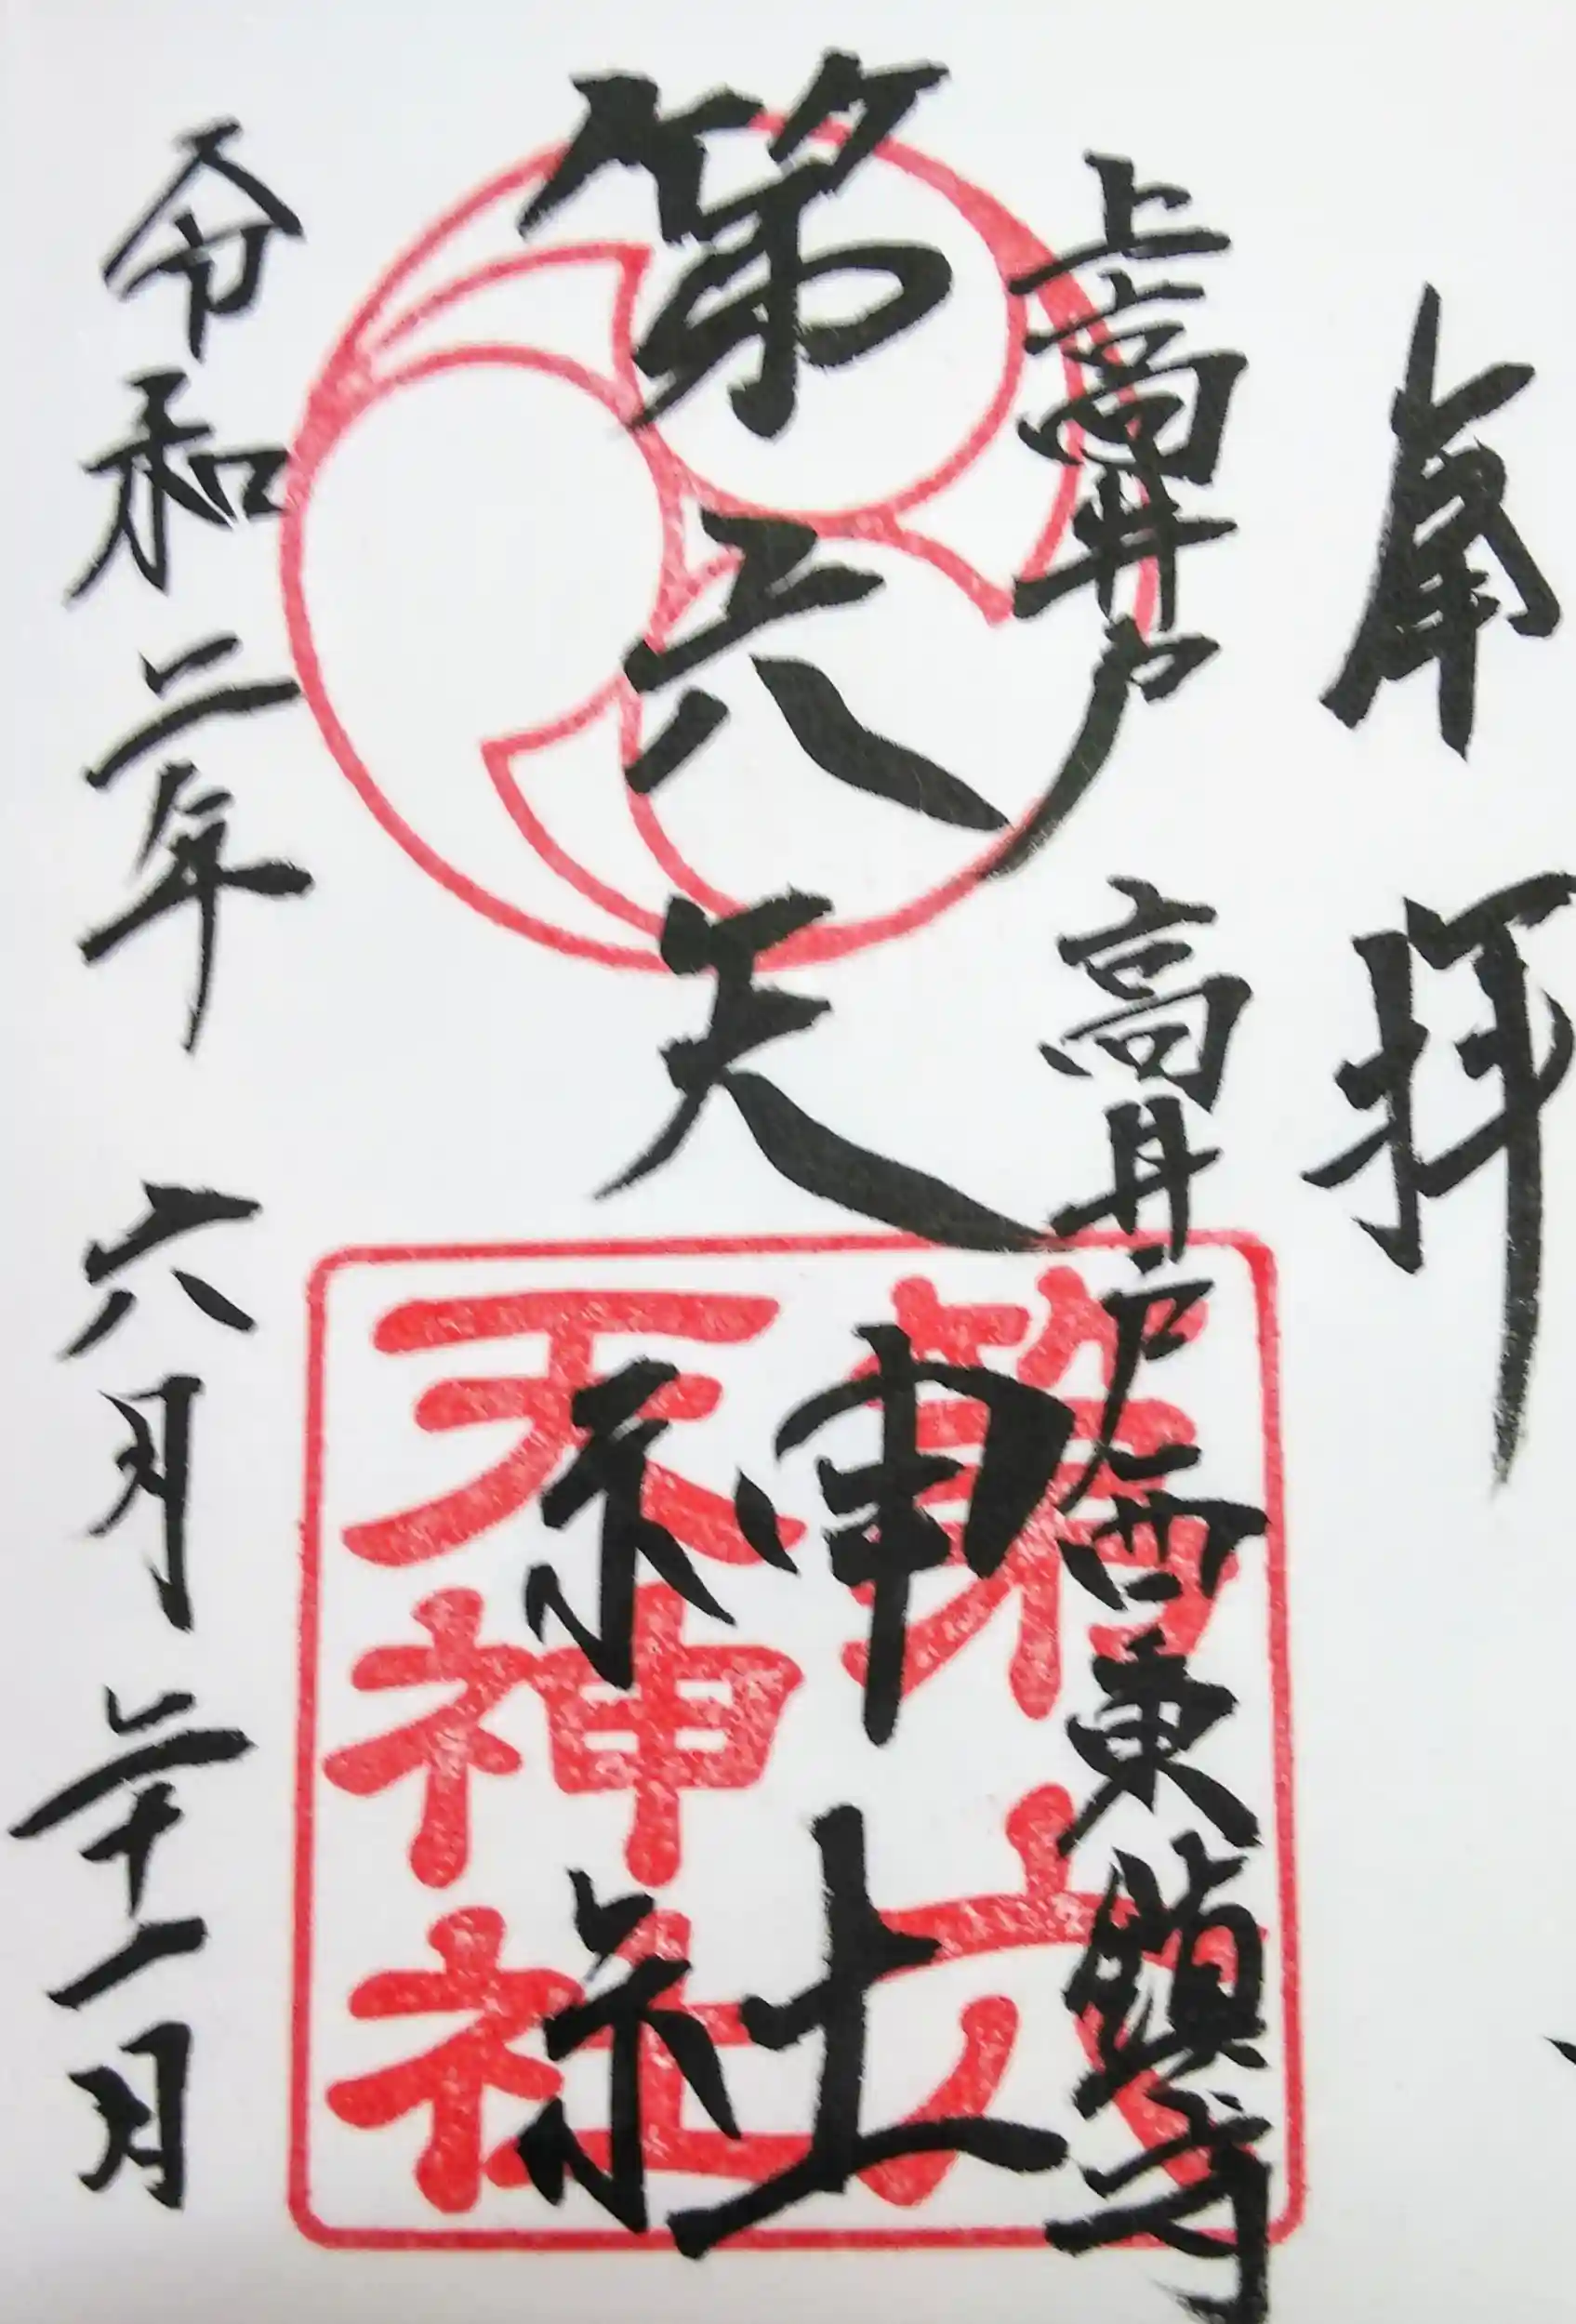 奉拝
上高井戸 高井戸西東鎮守
第六天神社
第六
天神社
令和二年 六月二十一日